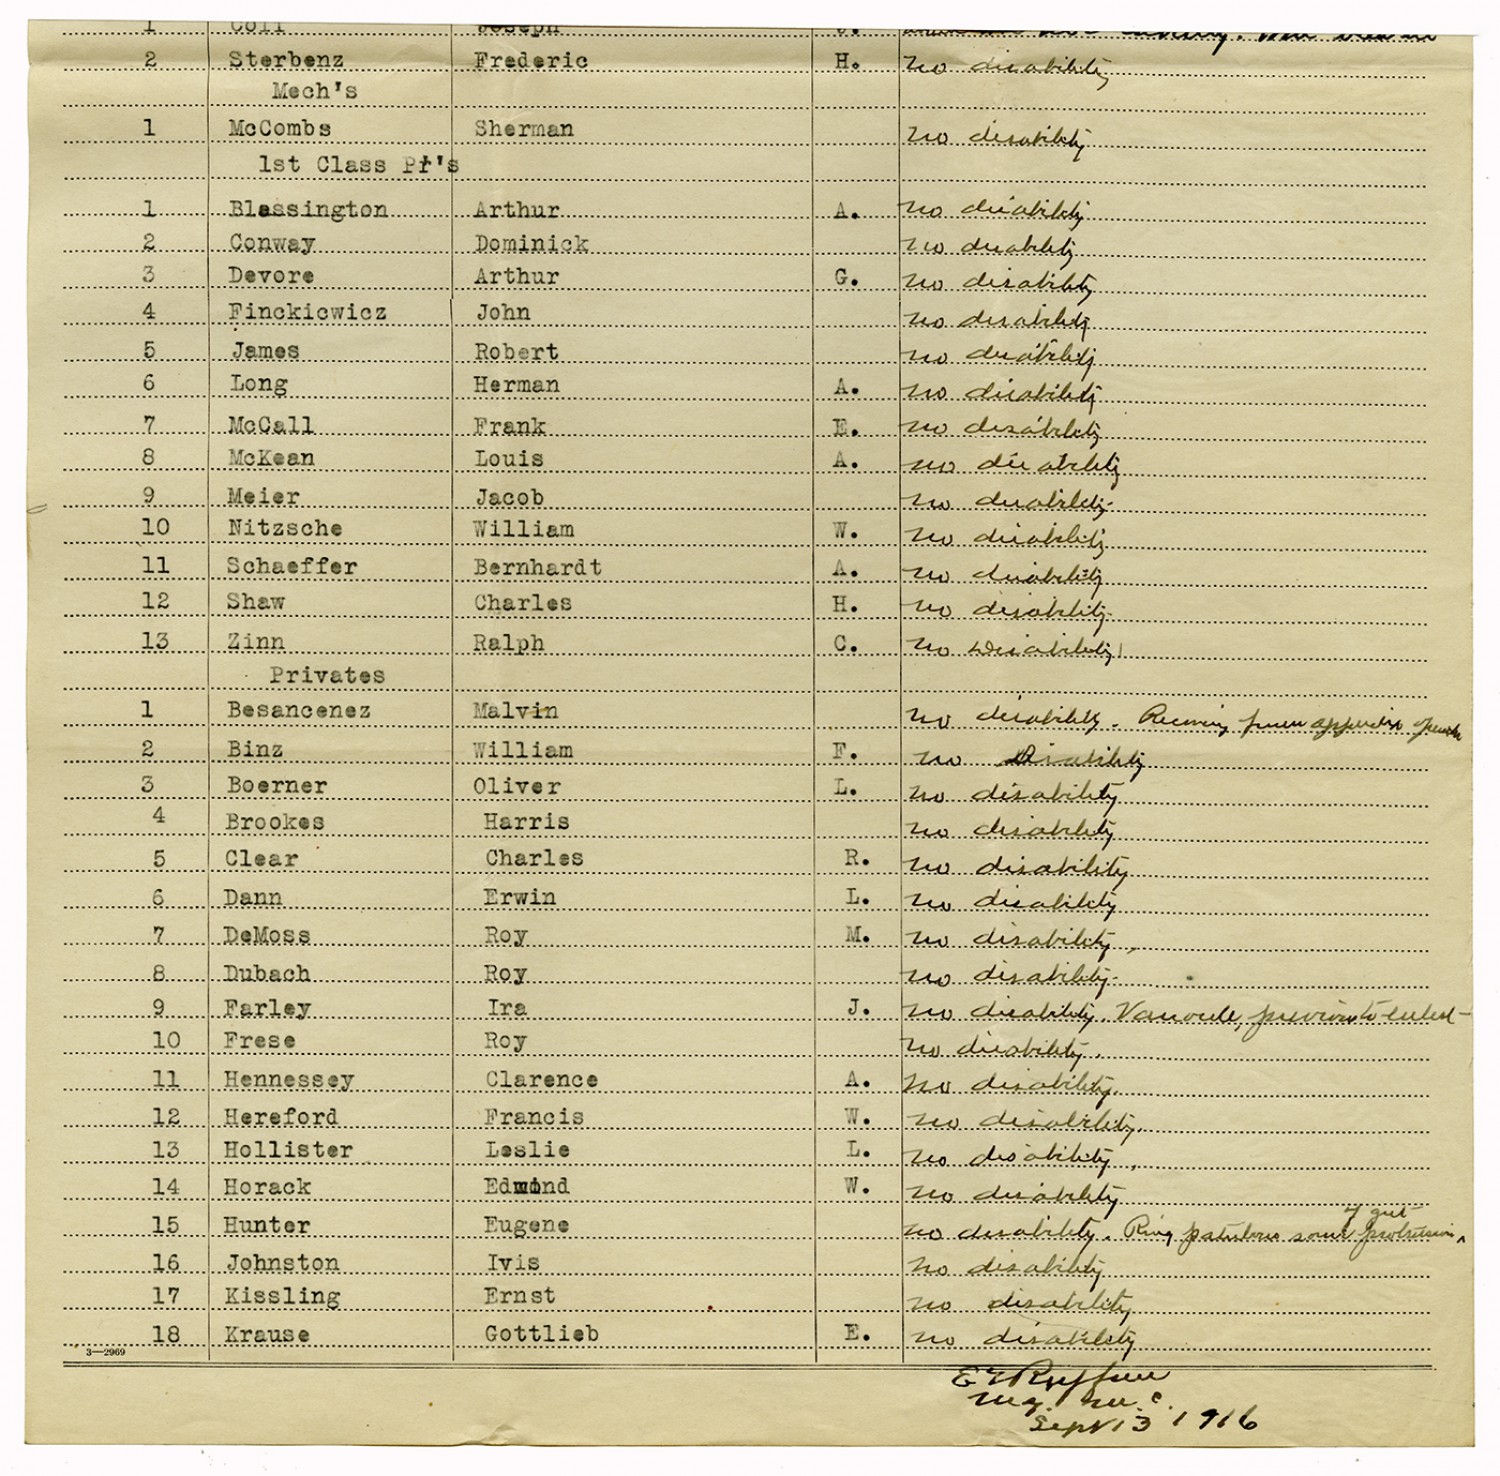 1 Coll Joseph J.
2 Sterbenz Frederic H. no disability
Mech's
1 McCombs Sherman no disability
1st Class Pr's
1 Blessington Arthur A. no disability
2 Conway Dominick no disability
3 Devore Arthur G. no disability
4 Finckicwicz John no disability
5 James Robert no disability
6 Long Herman A. no disability
7 McCall Frank E. no disability
8 McKean Louis A. no disability
9 Meier Jacob no disability
10 Nitzsche William W. no disability
11 Schaeffer Bernhardt A. no disability
12 Shaw Charles H. no disability
13 Zinn Ralph C. no Disability
Privates
1 Besancenez Malvin no disability. from appendix
2 Binz William F. no Disability
3 Boerner Oliver L. no disability
4 Brookes Harris no disability
5 Clear Charles R. no disability
6 Dann Erwin L. no disability
7 DeMoss Roy M. no disability
8 Dubach Roy no disability
9 Farley Ira J. no disability. previous to enlist-
10 Frese Roy no disability.
11 Hennessey Clarence A. no disability.
12 Hereford Francis W. no disability.
13 Hollister Leslie L. no disability
14 Horack Edmond W. no disability
15 Hunter Eugene no disability. Ring patulous some protrusion
of gut
16 Johnston Ivis no disability
17 Kissling Ernst no disability
18 Krause Gottlieb E. no disability
3—2969
M.C.
Sept 13 1916